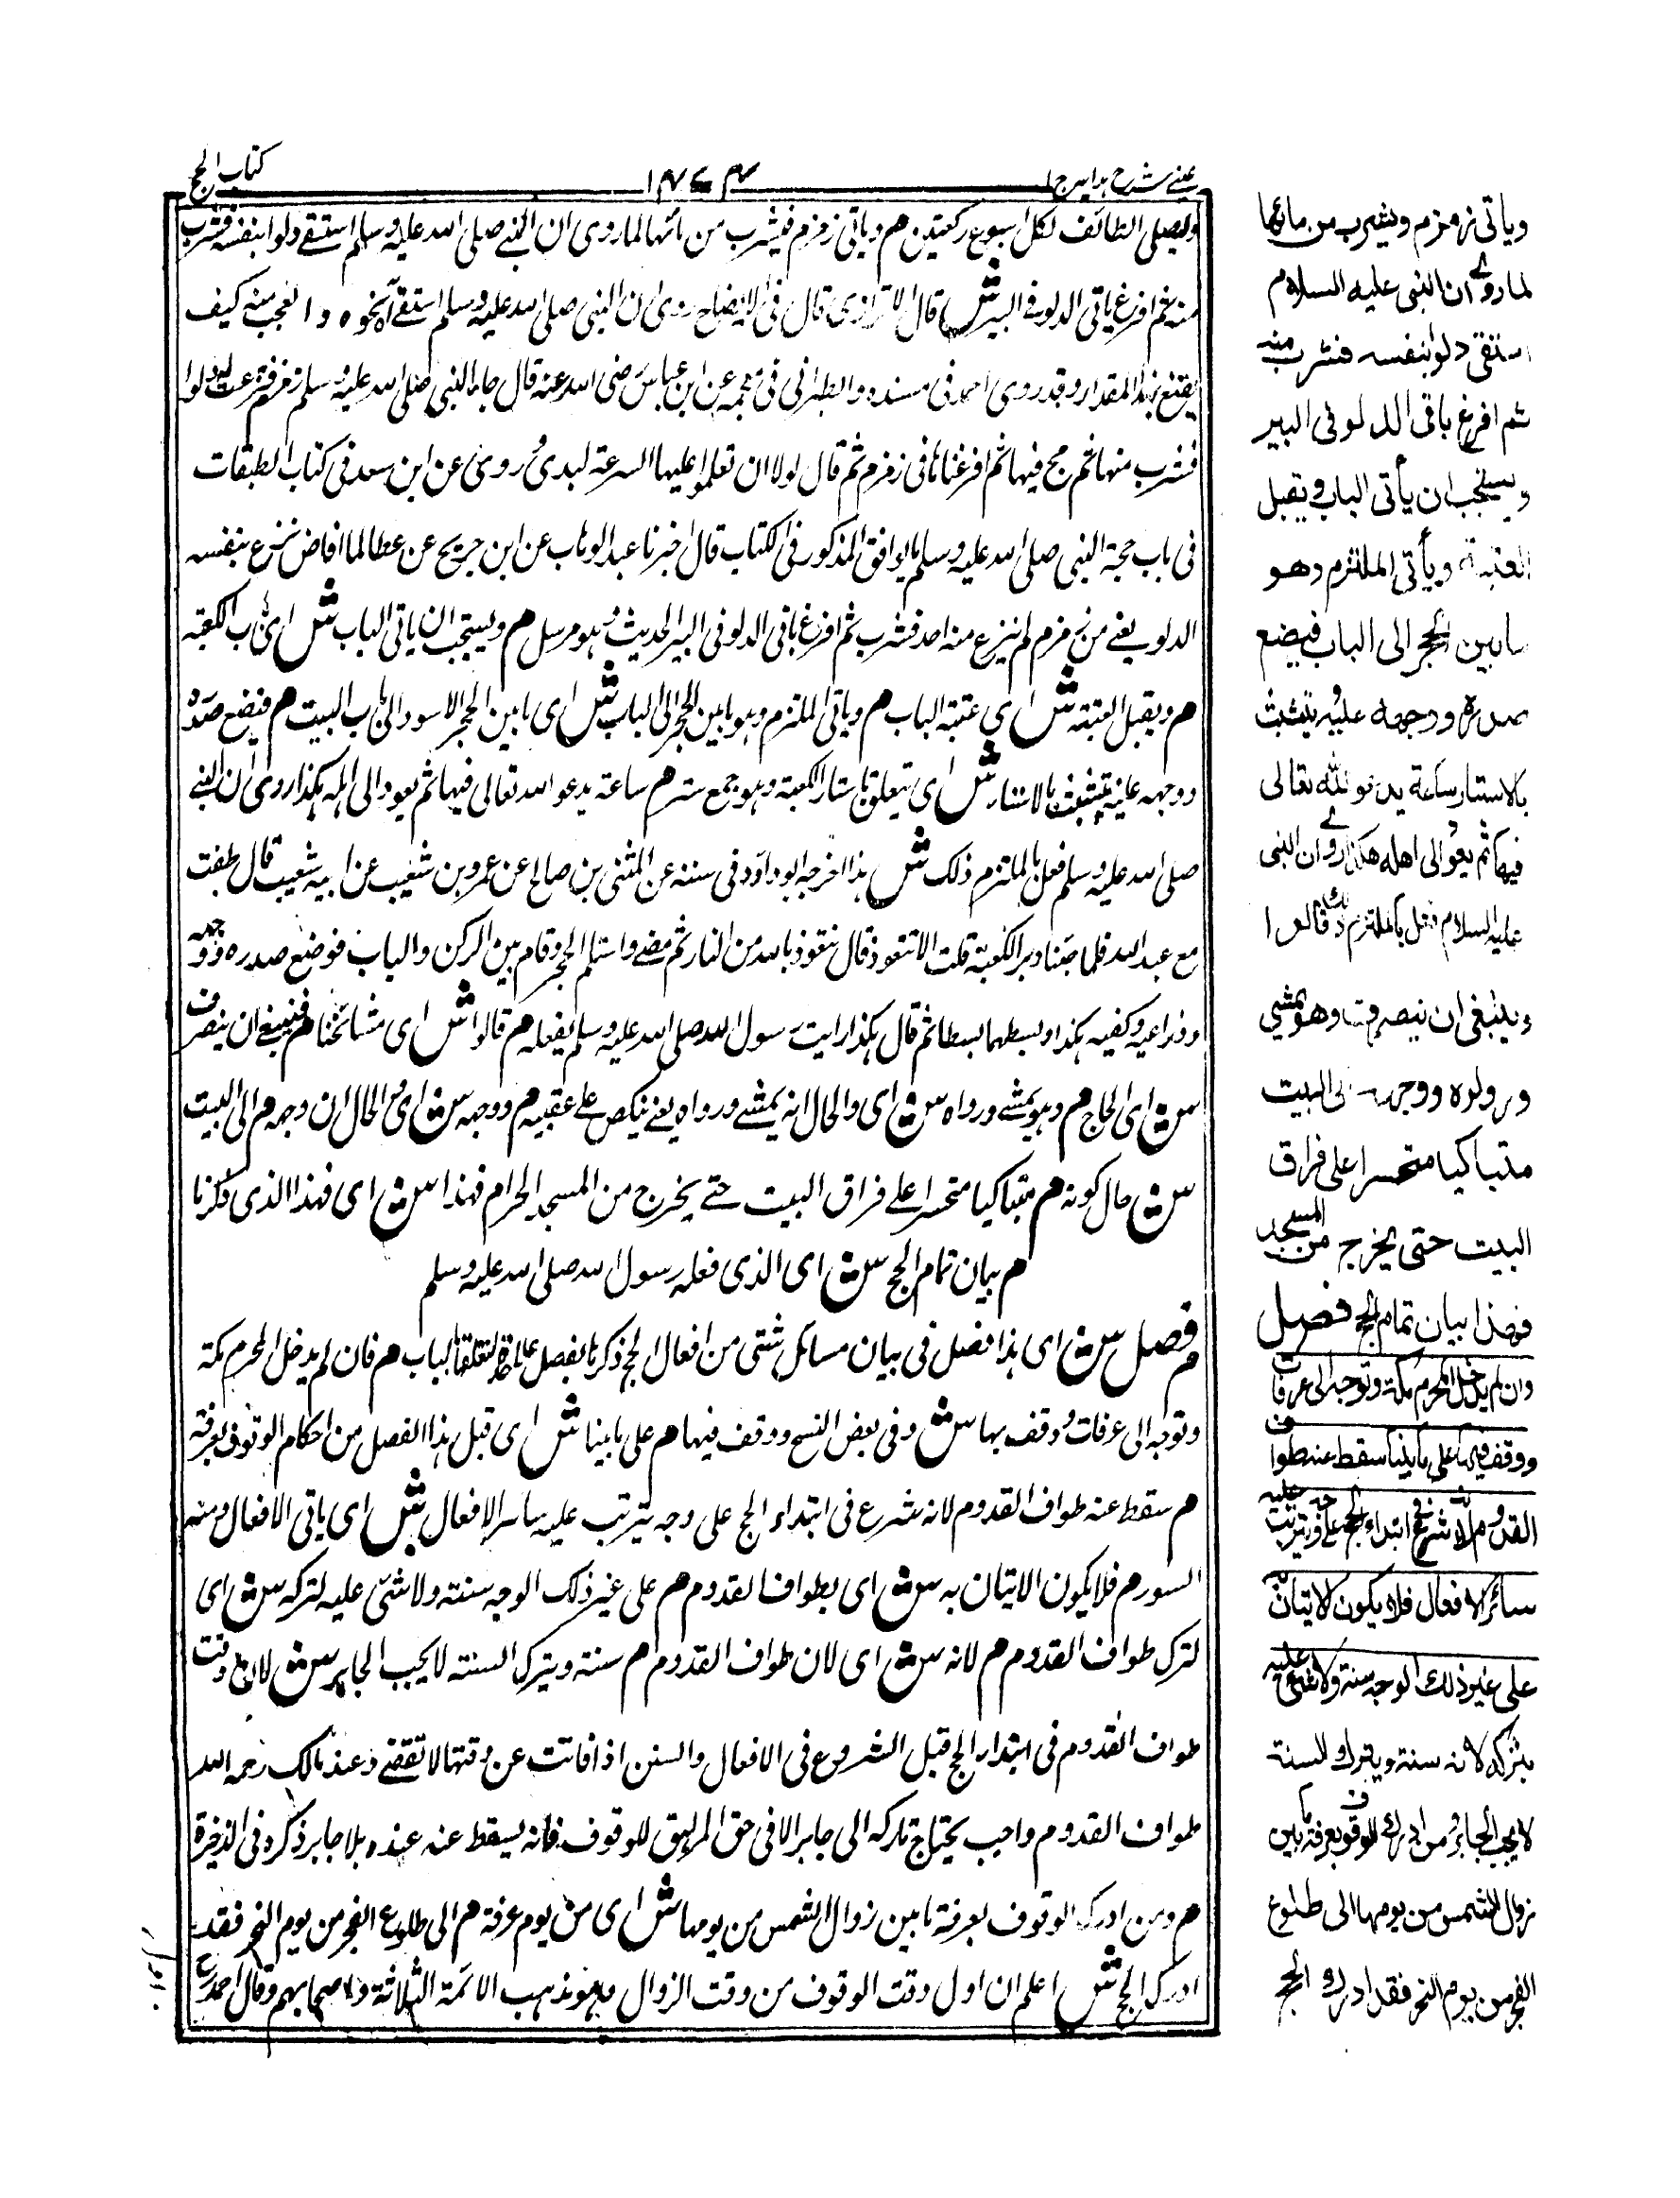 عینے شرح ہدایہ ج۱
۱۴۷۴
کتاب الحج
ولیصلی الطائف لکل اسبوع رکعتین م ویاتی زمزم فیشرب من مائہا لما روی ان النبے صلی اللہ علیہ وسلم استقے دلوا بنفسہ فشرب
منہ ثم افرغ باقی الدلو فے البیر ش قال الاترازی قال فی الایضاح روی ان النبی صلی اللہ علیہ وسلم استقے نحوہ العجب منہ کیف
یقنع بہذا المقدار وقد روی احمد فی مسندہ والطبرانی فی معجمہ عن ابن عباس رضی اللہ عنہ قال جاء النبی صلی اللہ علیہ وسلم زمزم فنزعت لہ دلوا
فشرب منہا ثم مج فیہا ثم افرغناہا فی زمزم ثم قال لولا ان تغلبوا علیہا لنزعت بیدی وروی عن ابن سعد فی کتاب الطبقات
فی باب حجۃ النبی صلی اللہ علیہ وسلم ما یوافق المذکور فی الکتاب قال اخبرنا عبد الوہاب عن ابن جریج عن عطا لما افاض نزع بنفسہ
الدلو یعنے من زمزم لم ینزع منہ احد فشرب ثم افرغ باقی الدلو فی البیر الحدیث وہو مرسل م ویستحب ان یاتی الباب ش ای باب الکعبۃ
م ویقبل العتبۃ ش ای عتبۃ الباب م ویاتی الملتزم وہو ما بین الحجر الی الباب ش ای ما بین الحجر الاسود الی باب البیت م فیضع صدرہ
ووجہہ علیہ یتشبث بالاستار ش ای یتعلق باستار الکعبۃ وہو جمع ستر م ساعۃ یدعو اللہ تعالی فیہا ثم یعود الی اہلہ ہکذا روی ان النبے
صلی اللہ علیہ وسلم فعل بالملتزم ذلک ش ہذا اخرجہ ابو داود فی سننہ عن المثنی بن صالح عن عمرو بن شعیب عن ابیہ شعیب قال طفت
مع عبد اللہ فلما جئنا دبر الکعبۃ قلت الا تتعوذ قال نتعوذ باللہ من النار ثم مضے واستلم الحجر وقام بین الرکن والباب فوضع صدرہ ووجہہ
وذراعیہ وکفیہ ہکذا وبسطہما بسطا ثم قال ہکذا رایت رسول اللہ صلی اللہ علیہ وسلم یفعلہ م قالوا ش ای مشائخنا م فینبغے ان ینصرف
ش ای الحاج م وہو یمشے وراہ ش ای والحال انہ یمشے وراہ یعنے ینکص علے عقبیہ م ووجہہ ش ای والحال ان وجہہ م الی البیت
ش حال کونہ م متباکیا متحسرا علے فراق البیت حتے یخرج من المسجد الحرام فہذا ش ای فہذا الذی ذکرنا
م بیان تمام الحج ش ای الذی فعلہ رسول اللہ صلی اللہ علیہ وسلم
م فصل ش ای ہذا فصل فی بیان مسائل شتی من افعال الحج ذکرہا بفصل علحدۃ لتعلقہا بالباب م فان لم یدخل المحرم مکۃ
وتوجہ الی عرفات ووقف بہا ش وفی بعض النسخ ووقف فیہا م علی ما بینا ش ای قبل ہذا الفصل من احکام الوقوف بعرفۃ
م سقط عنہ طواف القدوم لانہ شرع فی ابتداء الحج علی وجہ یترتب علیہ سائر الافعال ش ای باقی الافعال ومنہ
السور م فلا یکون الاتیان بہ ش ای بطواف القدوم م علی غیر ذلک الوجہ سنۃ ولا شئ علیہ لترکہ ش ای
لترک طواف القدوم م لانہ ش ای لان طواف القدوم م سنۃ وبترک السنۃ لا یجب الجابر ش لان وقت
طواف القدوم فی ابتداء الحج قبل الشروع فی الافعال والسنن اذا فاتت عن وقتہا لا تقضے وعند مالک رحمہ اللہ
طواف القدوم واجب یحتاج تارکہ الی جابر الا فی حق المراہق للوقوف فانہ یسقط عنہ عندہ بلا جابر ذکرہ فی الذخیرۃ
م ومن ادرک الوقوف بعرفۃ ما بین زوال الشمس من یومہا ش ای من یوم عرفۃ م الی طلوع الفجر من یوم النحر فقد
ادرک الحج ش اعلم ان اول وقت الوقوف من وقت الزوال وہو مذہب الائمۃ الثلاثۃ واصحابہم وقال احمد رح
ویاتی زمزم ویشرب من مائہا
لما روے ان النبی علیہ السلام
استقی دلوا بنفسہ فشرب منہ
ثم افرغ باقی الدلو فی البیر
ویستحب ان یأتی الباب ویقبل
العتبۃ ویأتی الملتزم وھو
ما بین الحجر الی الباب فیضع
صدرہ ووجہہ علیہ ویتشبث
بالاستار ساعۃ یدعو للہ تعالی
فیہا ثم یعود الی اھلہ ھکذا روے ان النبی
علیہ السلام فعل بالملتزم ذلک قالوا
وینبغی ان ینصرف وھو یمشی
وراءہ ووجہہ الی البیت
متباکیا متحسرا علی فراق
البیت حتی یخرج من المسجد
فھذا بیان تمام الحج فصل
وان لم یدخل المحرم مکۃ وتوجہ الی عرفات
ووقف فیہا علی ما بینا سقط عنہ طواف
القدوم لانہ شرع فی ابتداء الحج علی وجہ یترتب علیہ
سائر الافعال فلا یکون الاتیان بہ
علی غیر ذلک الوجہ سنۃ ولا شئ علیہ
بترکہ لانہ سنۃ وبترک السنۃ
لا یجب الجابر ومن ادرک الوقوف بعرفۃ ما بین
زوال الشمس من یومہا الی طلوع
الفجر من یوم النحر فقد ادرک الحج